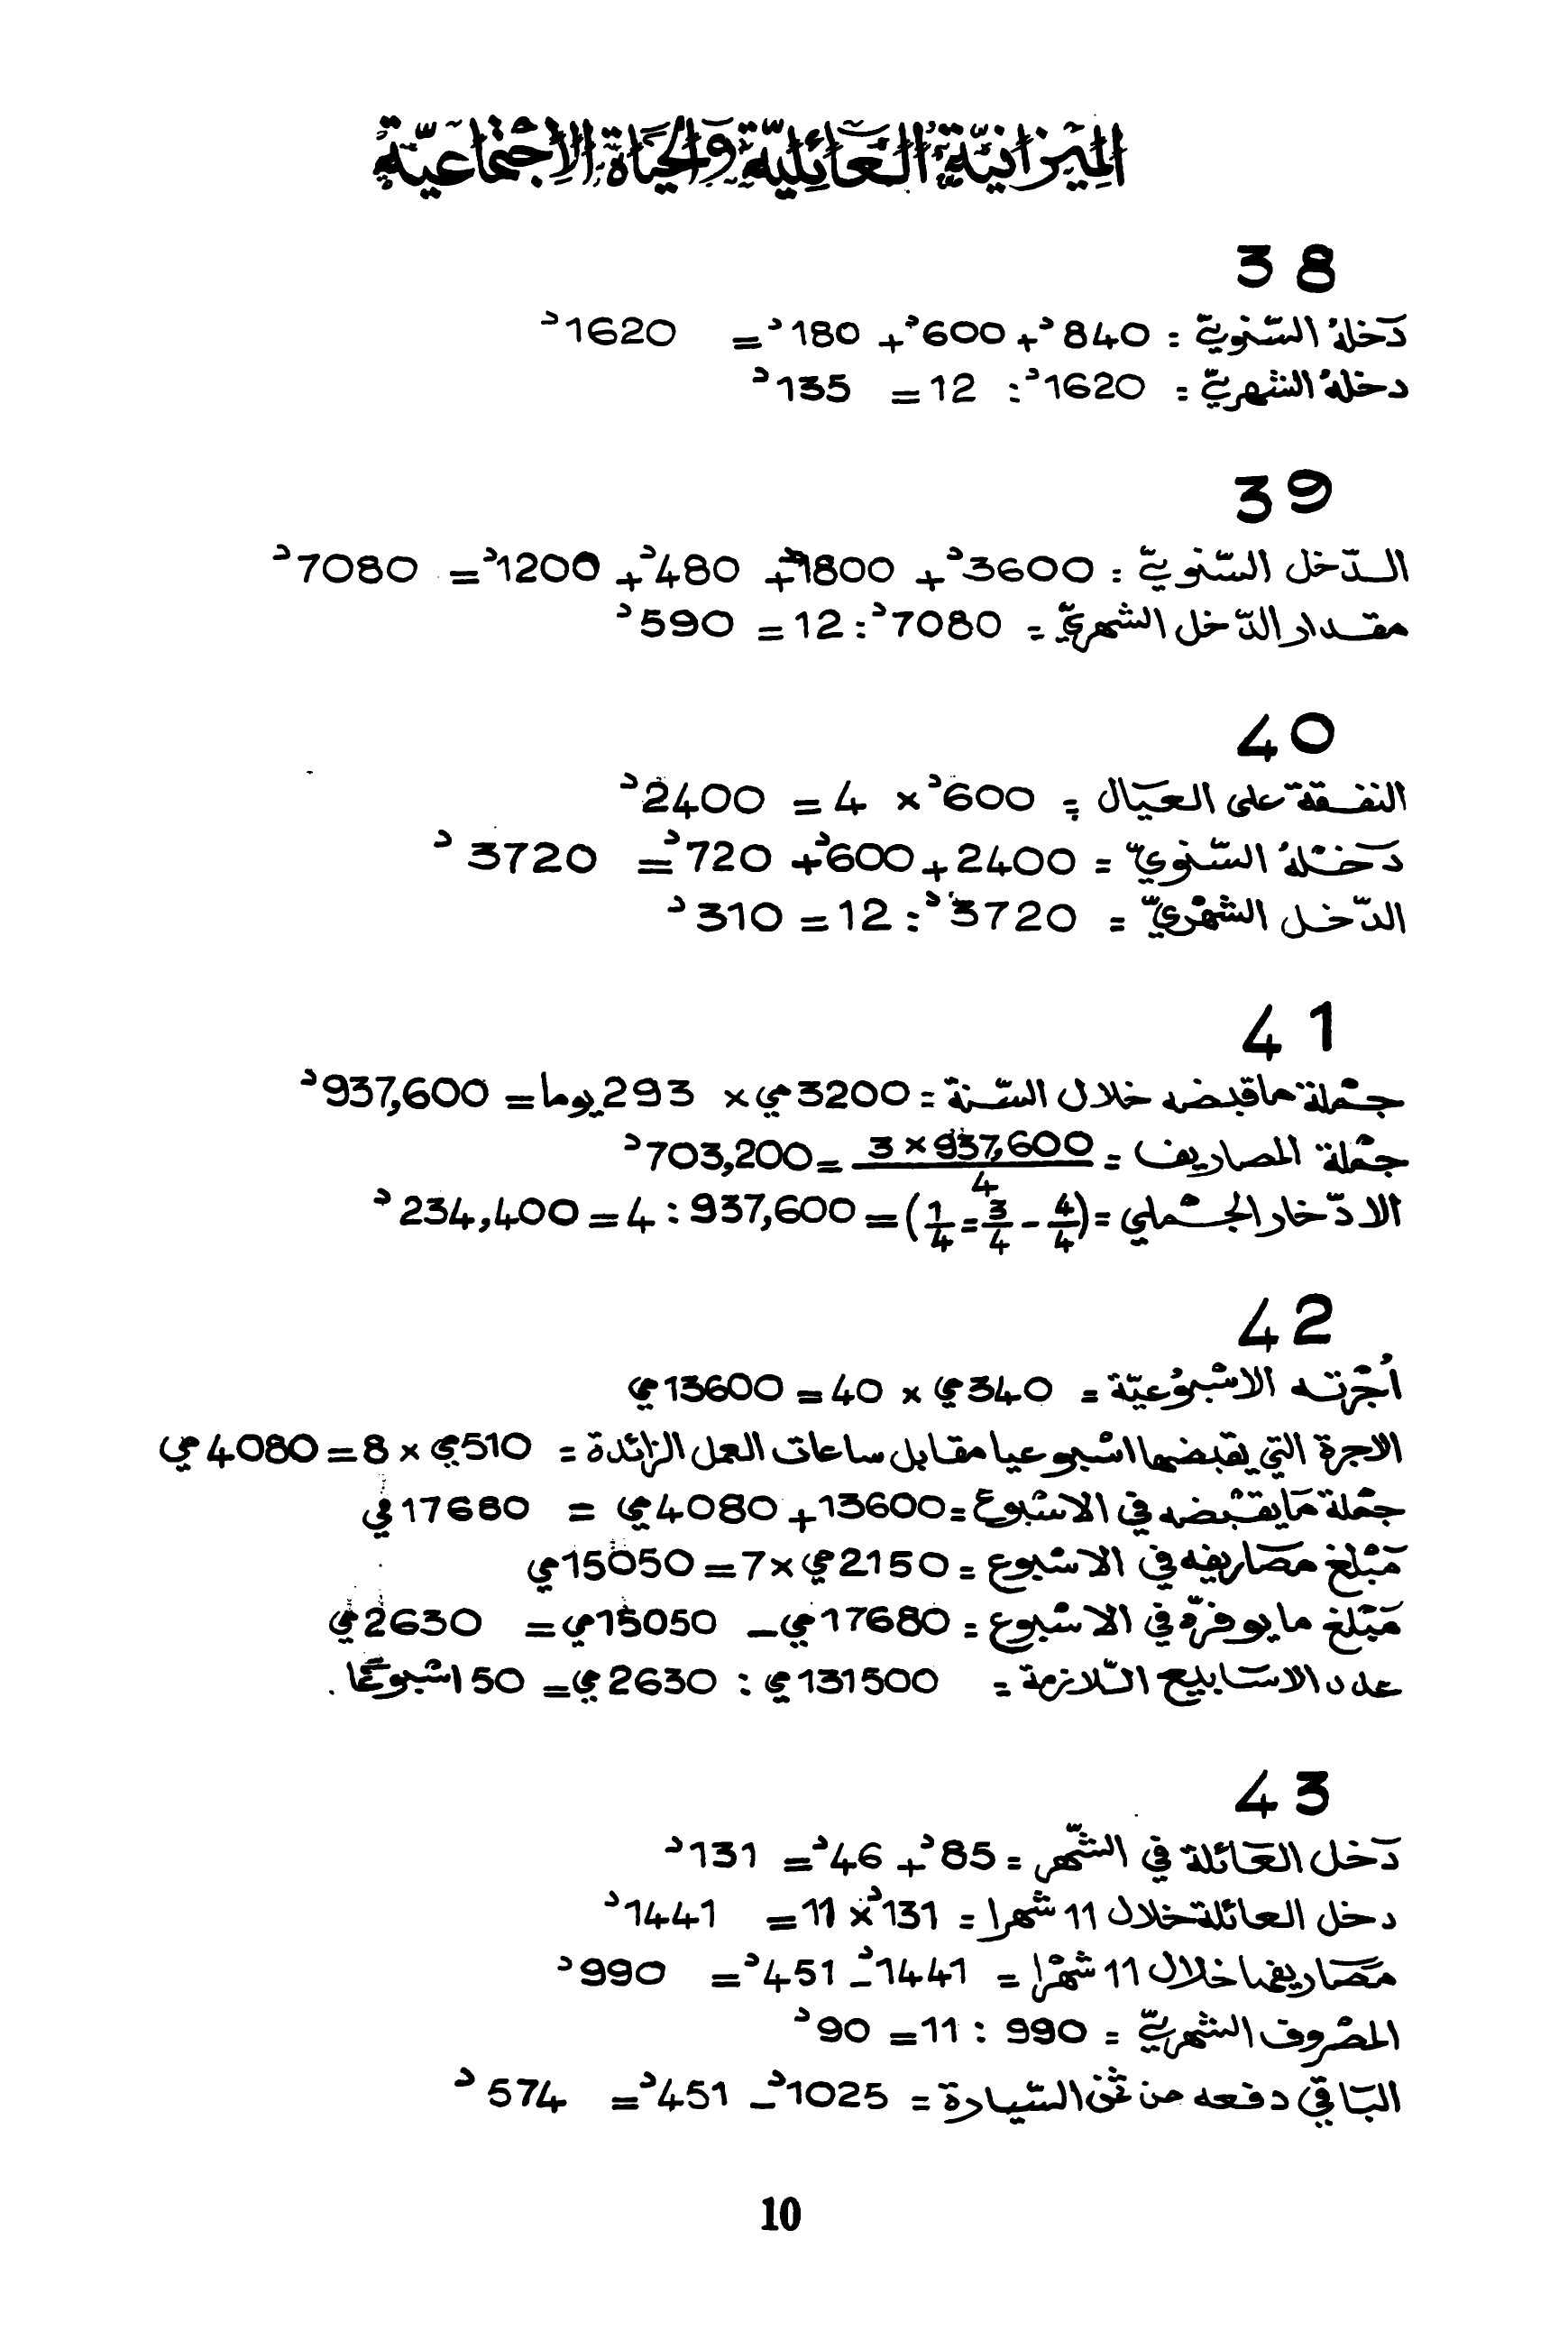 الميزانيّة العائليّة والحياة الاجتماعيّة
38
دخله السّنويّ = 840د + 600د + 180د = 1620د
دخله الشهريّ = 1620د : 12 = 135د
39
الدّخل السّنويّ = 3600د + 1800د + 480د + 1200د = 7080د
مقدار الدّخل الشّهريّ = 7080د : 12 = 590د
40
النفقة على العيال = 600د × 4 = 2400د
دخله السّنويّ = 2400 + 600د + 720د = 3720د
الدّخل الشّهريّ = 3720د : 12 = 310د
41
جملة ما قبضه خلال السّنة = 3200مي × 293 يوما = 937,600د
جملة المصاريف = 937,600 × 3 / 4 = 703,200د
الادّخار الجملي = (4/4 - 3/4 = 1/4) = 937,600 : 4 = 234,400د
42
أجرته الاسبوعيّة = 340مي × 40 = 13600مي
الاجرة التي يقبضها اسبوعيا مقابل ساعات العمل الزائدة = 510مي × 8 = 4080مي
جملة ما يقبضه في الاسبوع = 13600 + 4080مي = 17680مي
مبلغ مصاريفه في الاسبوع = 2150مي × 7 = 15050مي
مبلغ ما يوفرّه في الاسبوع = 17680مي - 15050مي = 2630مي
عدد الاسابيع اللّازمة = 131500مي : 2630مي = 50 اسبوعًا .
43
دخل العائلة في الشّهر = 85د + 46د = 131د
دخل العائلة خلال 11 شهرا = 131د × 11 = 1441د
مصاريفها خلال 11 شهرا = 1441د - 451د = 990د
المصروف الشّهريّ = 990 : 11 = 90د
الباقي دفعه من ثمن السّيارة = 1025د - 451د = 574د
10